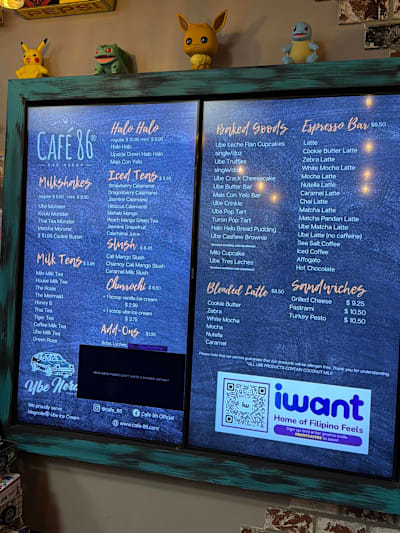 CAFÉ 86®
Milkshakes
regular $ 8.50 mini $ 6.50
Ube Monster
Kookii Monster
Thai Tea Monster
Matcha Monster
Milk Teas $ 5.85
Milk Milk Tea
House Milk Tea
The Rosie
The Mermaid
Honey B
Thai Tea
Tiger Tea
Coffee Milk Tea
Ube Milk Tea
Green Rose
Ube Nerd
We proudly serve
Magnolia® Ube Ice Cream
Halo Halo
Halo Halo
Upside Down Halo Halo
Mais Con Yelo
Iced Teas
Strawberry Calamansi
Dragonberry Calamansi
Jasmine Calamansi
Hibiscus Calamansi
Mañalo Mango
Peach Mango Green Tea
Jasmine Grapefruit
Calamansi Juice
Slush $ 6.45
Cali Mango Slush
Chamoy Cali Mango Slush
Caramel Milk Slush
Churrochi $ 6.50
+ 1 scoop vanilla ice cream
$ 2.99
+ 1 scoop ube ice cream
$ 3.75
Add-Ons
@cafe_86
Cafe 86 Official
www.cafe-86.com
Baked Goods
Ube Leche Flan Cupcakes
single/doz
Ube Truffles
single/doz
Ube Crack Cheesecake
Ube Butter Bar
Mais Con Yelo Bar
Ube Crinkle
Ube Pop Tart
Turon Pop Tart
Halo Halo Bread Pudding
Ube Cashew Brownie
Milo Cupcake
Ube Tres Leches
Blended Latte $8.50
Cookie Butter
Zebra
White Mocha
Mocha
Nutella
Caramel
Espresso Bar $6.50
Latte
Cookie Butter Latte
Zebra Latte
White Mocha Latte
Mocha Latte
Nutella Latte
Caramel Latte
Chai Latte
Matcha Latte
Matcha Pandan Latte
Ube Matcha Latte
Ube Latte (no caffeine)
Sea Salt Coffee
Iced Coffee
Affogato
Hot Chocolate
Sandwiches
Grilled Cheese $ 9.25
Pastrami $ 10.50
Turkey Pesto $ 10.50
Please note that we cannot guarantee that our products will be allergen free. Thank you for understanding.
*ALL UBE PRODUCTS CONTAIN COCONUT MILK*
iwant
Home of Filipino Feels